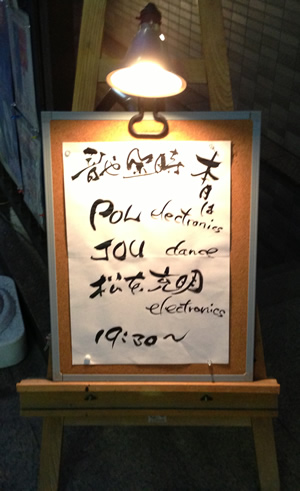 本日は
音や金時
POL electronics
JOU dance
松本充明
electronics
19:30〜